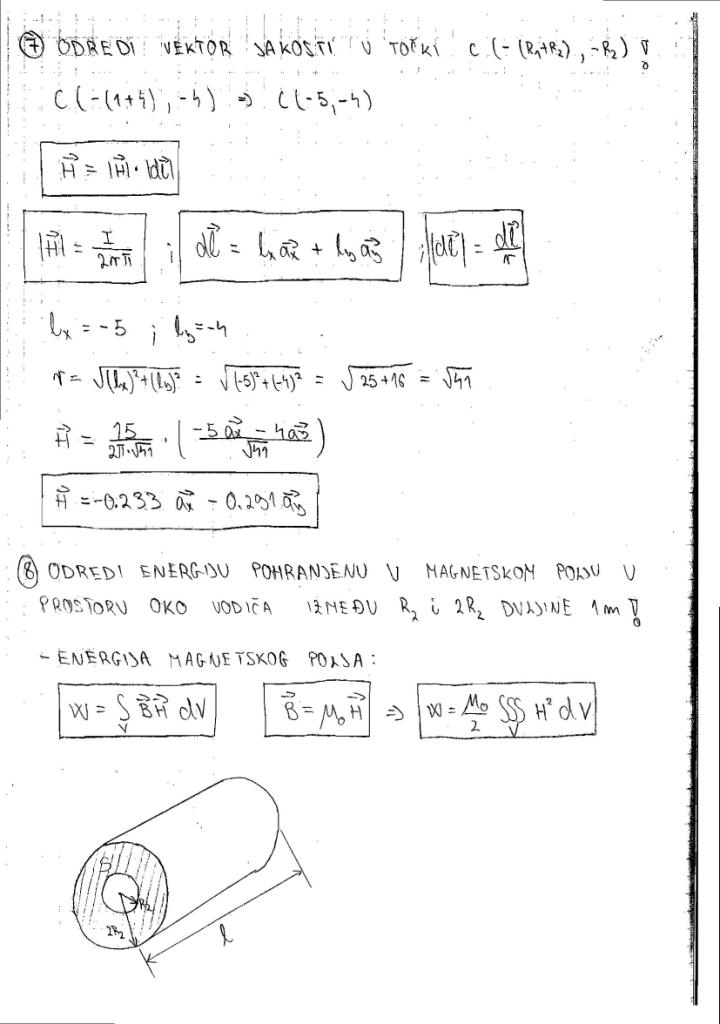 ⑦ ODREDI VEKTOR JAKOSTI U TOČKI C (-(R₁+R₂), -R₂) !
C(-(1+4), -4) ⇒ C(-5, -4)
H⃗ = |H⃗| · |dl⃗|
|H⃗| = I / 2rπ ; dl⃗ = lₓ a⃗x + l_y a⃗y ; |dl⃗| = dl⃗ / r
lₓ = -5 ; l_y = -4
r = √((lₓ)² + (l_y)²) = √((-5)² + (-4)²) = √(25+16) = √41
H⃗ = 15 / (2π·√41) · ( (-5 a⃗x - 4 a⃗y) / √41 )
H⃗ = -0.233 a⃗x - 0.291 a⃗y
⑧ ODREDI ENERGIJU POHRANJENU U MAGNETSKOM POLJU U
PROSTORU OKO VODIČA IZMEĐU R₂ i 2R₂ DULJINE 1m !
- ENERGIJA MAGNETSKOG POLJA :
W = ∫_V B⃗H⃗ dV B⃗ = μ₀ H⃗ ⇒ W = μ₀/2 ∭_V H² dV
S
R₂
2R₂
l